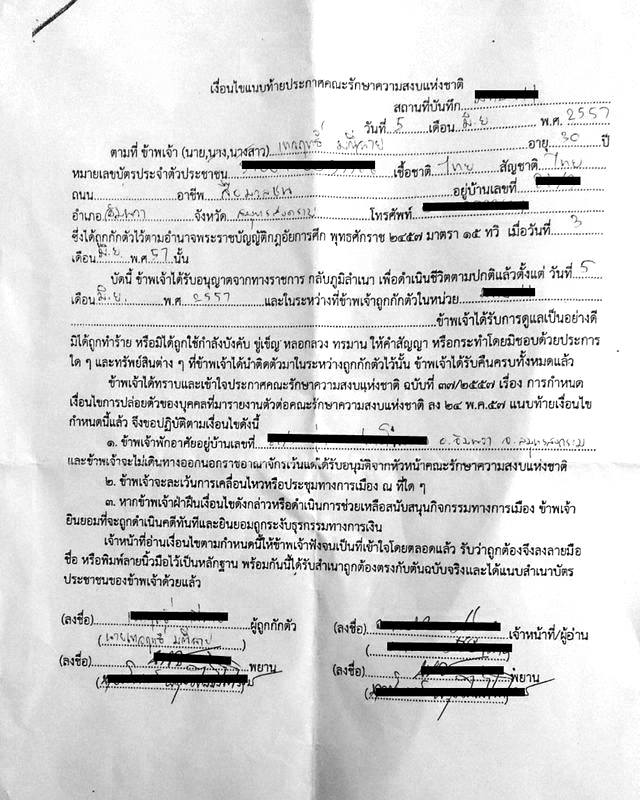 เงื่อนไขแนบท้ายประกาศคณะรักษาความสงบแห่งชาติ
สถานที่บันทึก
วันที่ 5 เดือน มิ.ย พ.ศ. 2557
ตามที่ ข้าพเจ้า (นาย,นาง,นางสาว) เทวฤทธิ์ มณีฉาย อายุ 30 ปี
หมายเลขบัตรประจำตัวประชาชน เชื้อชาติ ไทย สัญชาติ ไทย
ถนน อาชีพ สื่อมวลชน อยู่บ้านเลขที่
อำเภอ อัมพวา จังหวัด สมุทรสงคราม โทรศัพท์
ซึ่งได้ถูกกักตัวไว้ตามอำนาจพระราชบัญญัติกฎอัยการศึก พุทธศักราช ๒๔๕๗ มาตรา ๑๕ ทวิ เมื่อวันที่ 3
เดือน มิ.ย พ.ศ. 57 นั้น
บัดนี้ ข้าพเจ้าได้รับอนุญาตจากทางราชการ กลับภูมิลำเนา เพื่อดำเนินชีวิตตามปกติแล้วตั้งแต่ วันที่ 5
เดือน มิ.ย. พ.ศ 2557 และในระหว่างที่ข้าพเจ้าถูกกักตัวในหน่วย
ข้าพเจ้าได้รับการดูแลเป็นอย่างดี
มิได้ถูกทำร้าย หรือมิได้ถูกใช้กำลังบังคับ ขู่เข็ญ หลอกลวง ทรมาน ให้คำสัญญา หรือกระทำโดยมิชอบด้วยประการ
ใด ๆ และทรัพย์สินต่าง ๆ ที่ข้าพเจ้าได้นำติดตัวมาในระหว่างถูกกักตัวไว้นั้น ข้าพเจ้าได้รับคืนครบทั้งหมดแล้ว
ข้าพเจ้าได้ทราบและเข้าใจประกาศคณะรักษาความสงบแห่งชาติ ฉบับที่ ๓๗/๒๕๕๗ เรื่อง การกำหนด
เงื่อนไขการปล่อยตัวของบุคคลที่มารายงานตัวต่อคณะรักษาความสงบแห่งชาติ ลง ๒๔ พ.ค.๕๗ แนบท้ายเงื่อนไข
กำหนดนี้แล้ว จึงขอปฏิบัติตามเงื่อนไขดังนี้
๑. ข้าพเจ้าพักอาศัยอยู่บ้านเลขที่ อ.อัมพวา จ.สมุทรสงคราม
และข้าพเจ้าจะไม่เดินทางออกนอกราชอาณาจักรเว้นแต่ได้รับอนุมัติจากหัวหน้าคณะรักษาความสงบแห่งชาติ
๒. ข้าพเจ้าจะละเว้นการเคลื่อนไหวหรือประชุมทางการเมือง ณ ที่ใด ๆ
๓. หากข้าพเจ้าฝ่าฝืนเงื่อนไขดังกล่าวหรือดำเนินการช่วยเหลือสนับสนุนกิจกรรมทางการเมือง ข้าพเจ้า
ยินยอมที่จะถูกดำเนินคดีทันทีและยินยอมถูกระงับธุรกรรมทางการเงิน
เจ้าหน้าที่อ่านเงื่อนไขตามกำหนดนี้ให้ข้าพเจ้าฟังจนเป็นที่เข้าใจโดยตลอดแล้ว รับว่าถูกต้องจึงลงลายมือ
ชื่อ หรือพิมพ์ลายนิ้วมือไว้เป็นหลักฐาน พร้อมกันนี้ได้รับสำเนาถูกต้องตรงกับต้นฉบับจริงและได้แนบสำเนาบัตร
ประชาชนของข้าพเจ้าด้วยแล้ว
(ลงชื่อ) ผู้ถูกกักตัว
(นายเทวฤทธิ์ มณีฉาย)
(ลงชื่อ) พยาน
(ลงชื่อ) เจ้าหน้าที่/ผู้อ่าน
(ลงชื่อ) พยาน